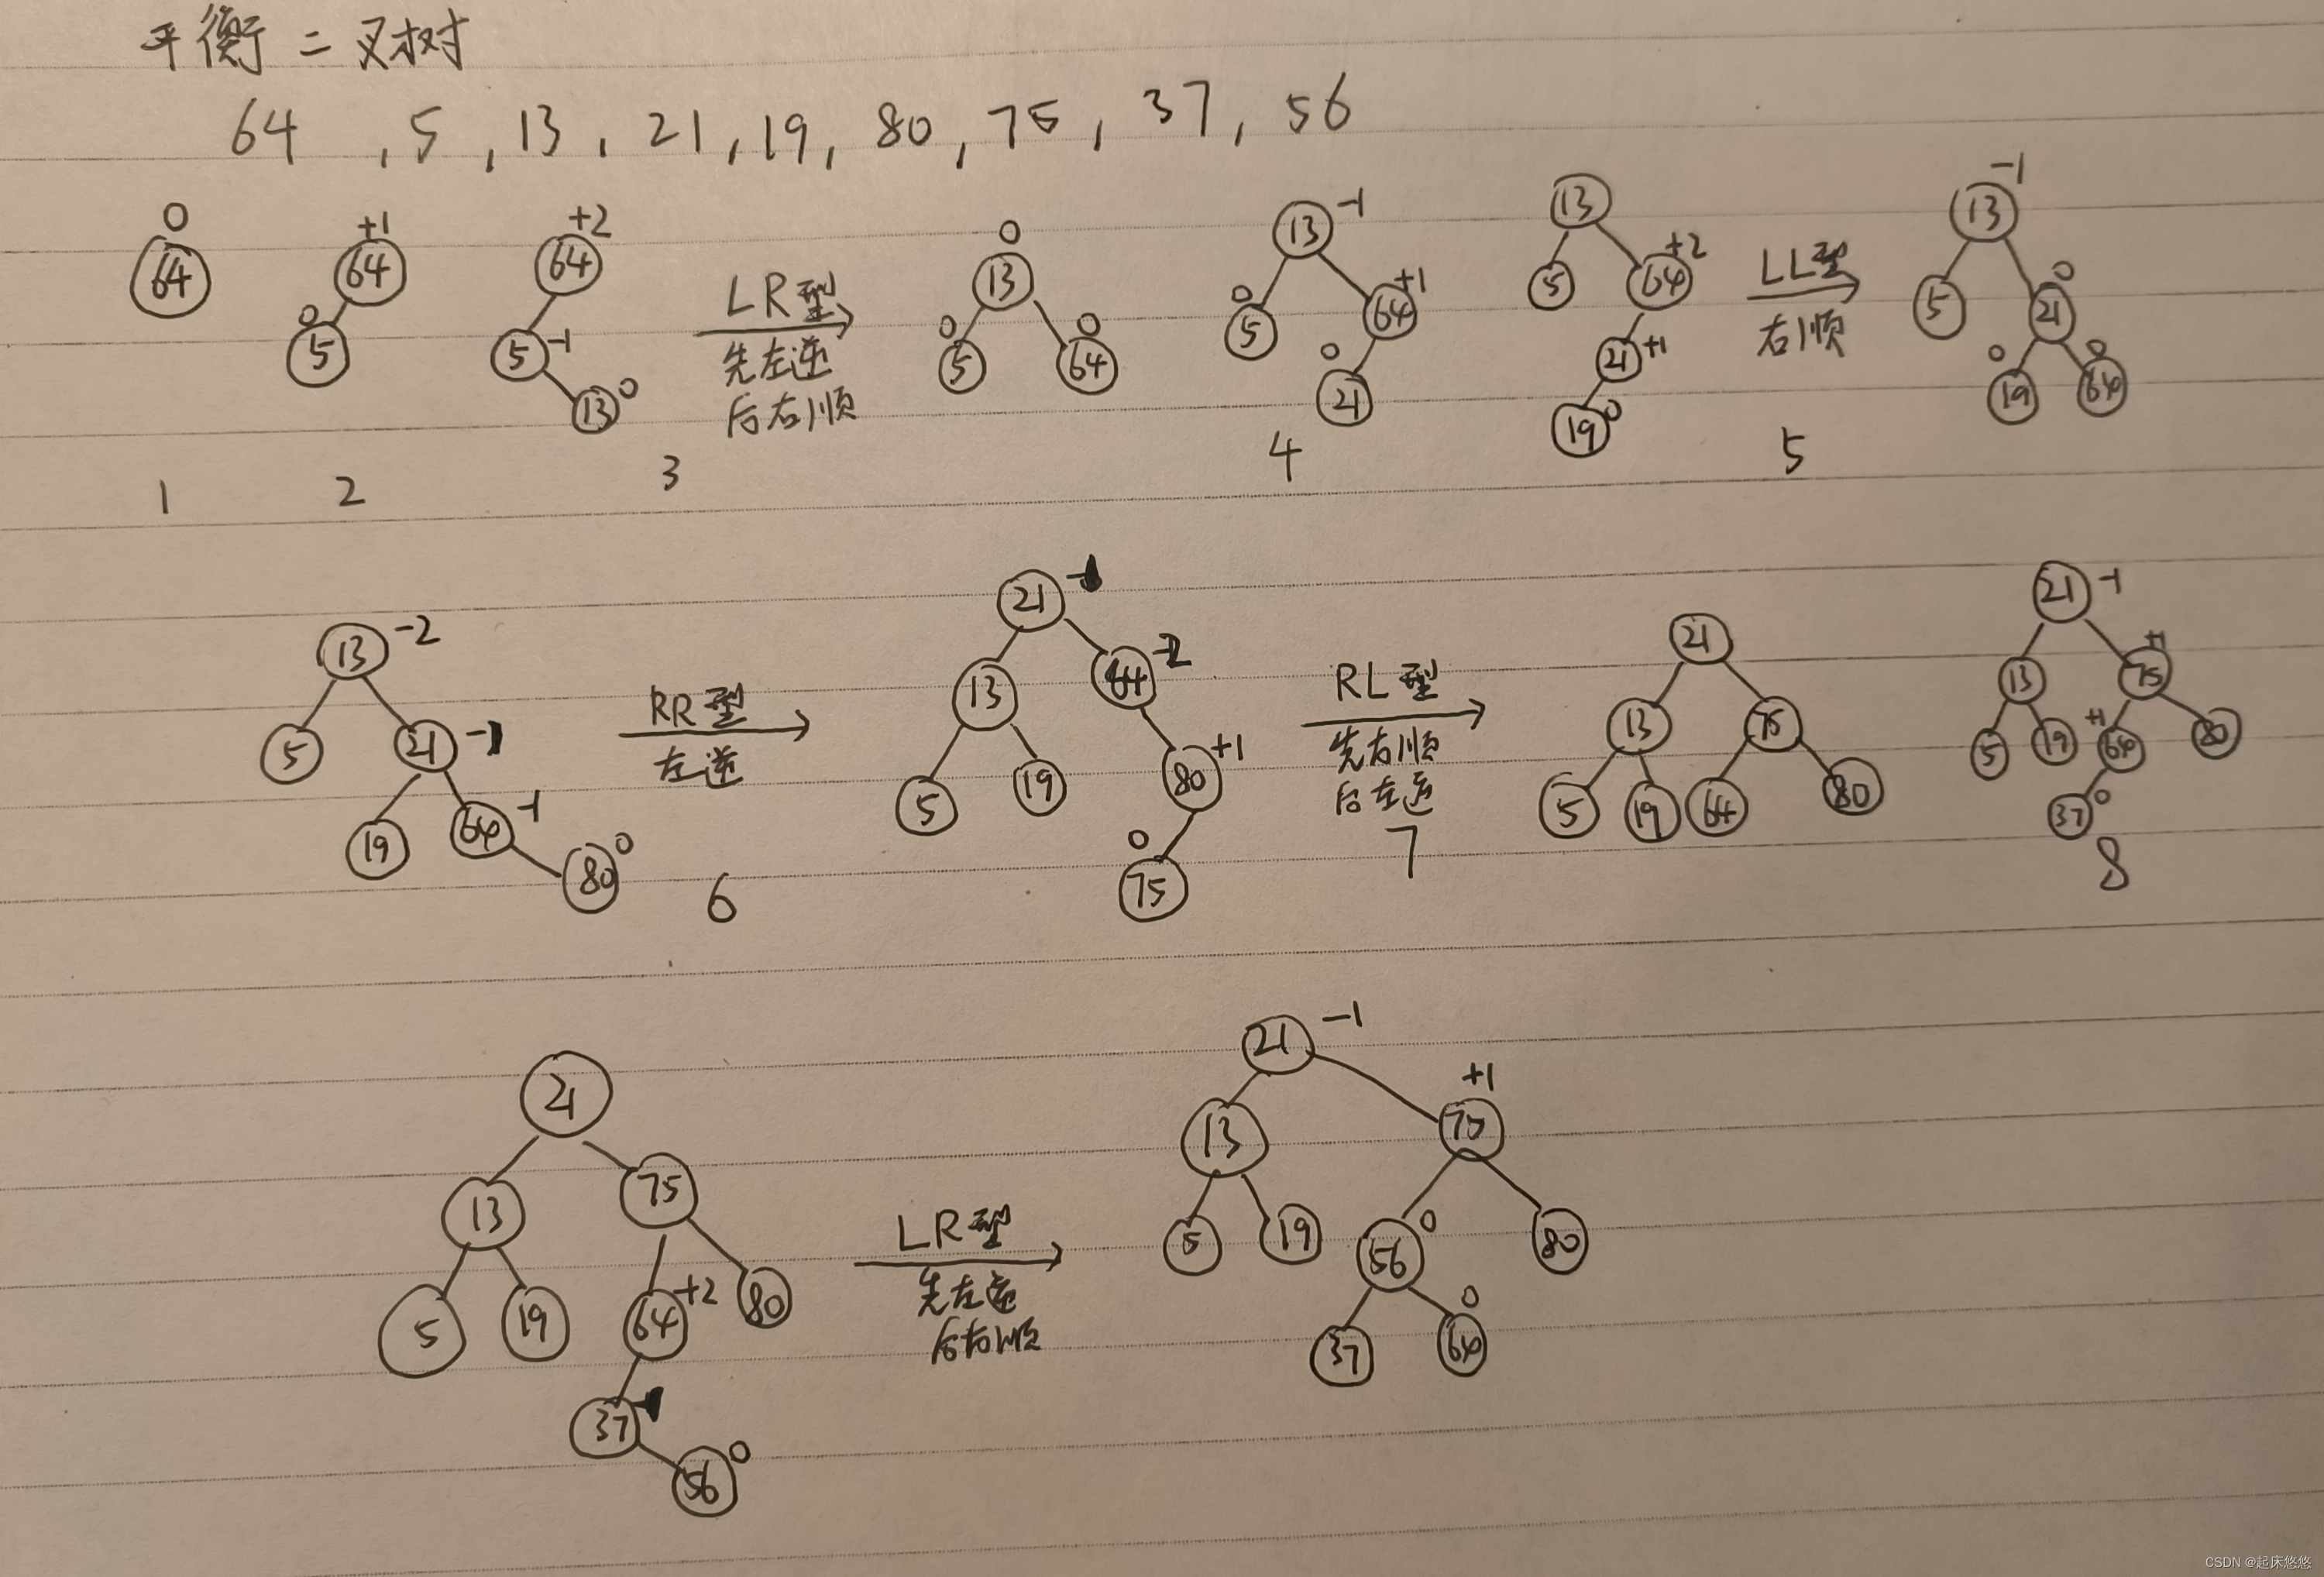 平衡二叉树
64 , 5 , 13 , 21 , 19 , 80 , 75 , 37 , 56
0
64
1
+1
64
0
5
2
+2
64
5 -1
13 0
3
LR型
先左逆
后右顺
0
13
0
5
0
64
13 -1
0
5
+1
64
0
21
4
13
5
+2
64
21 +1
19 0
LL型
右顺
5
-1
13
5
0
21
0
19
0
64
13 -2
5
21 -1
19
64 -1
80 0
6
RR型
左逆
21
13
64 -2
5
19
80 +1
0
75
RL型
先右顺
后左逆
7
21
13
75
5
19
64
80
21 -1
13
+1
75
5
19
+1
64
80
37 0
8
21
13
75
5
19
64 +2
80
37
56 0
LR型
先左逆
后右顺
21 -1
13
+1
75
5
19
56 0
80
37
0
64
CSDN @起床悠悠